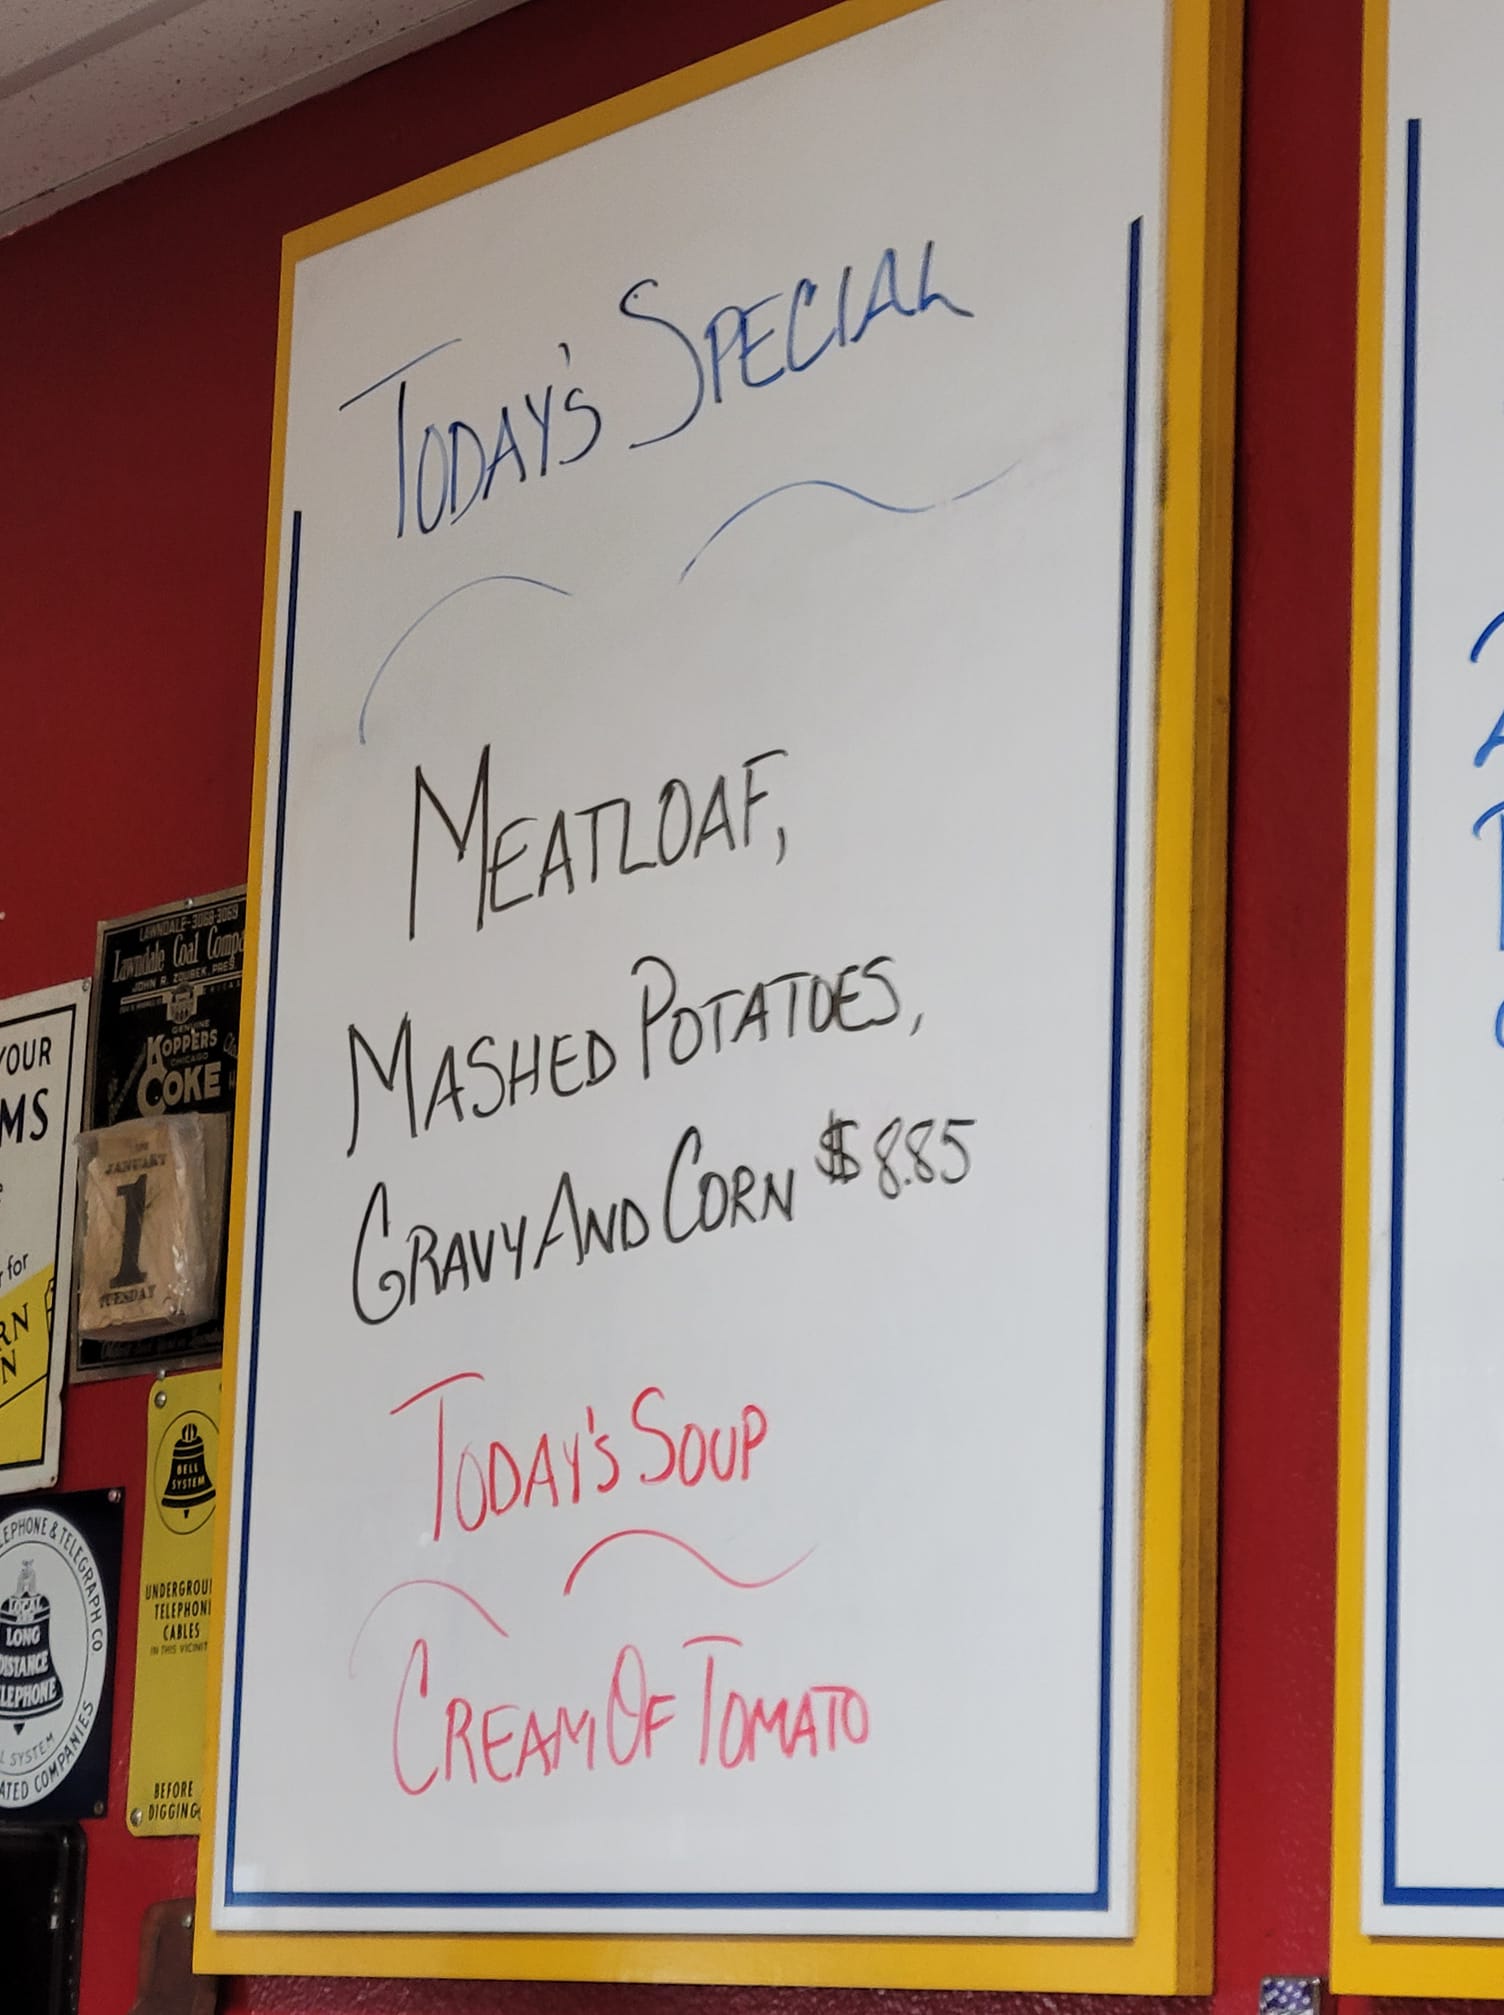 TODAY'S SPECIAL
MEATLOAF,
MASHED POTATOES,
GRAVY AND CORN $8.85
TODAY'S SOUP
CREAM OF TOMATO
LAWNDALE-3068-3069
Lawndale Coal
JOHN R. ZOUBEK, PRES
GENUINE
KOPPERS
CHICAGO
COKE
JANUARY
1
TUESDAY
YOUR
for
BELL
SYSTEM
TELEPHONE
CABLES
IN THIS
BEFORE
DIGGING
& TELEGRAPH CO
LOCAL
LONG
DISTANCE
SYSTEM
COMPANIES